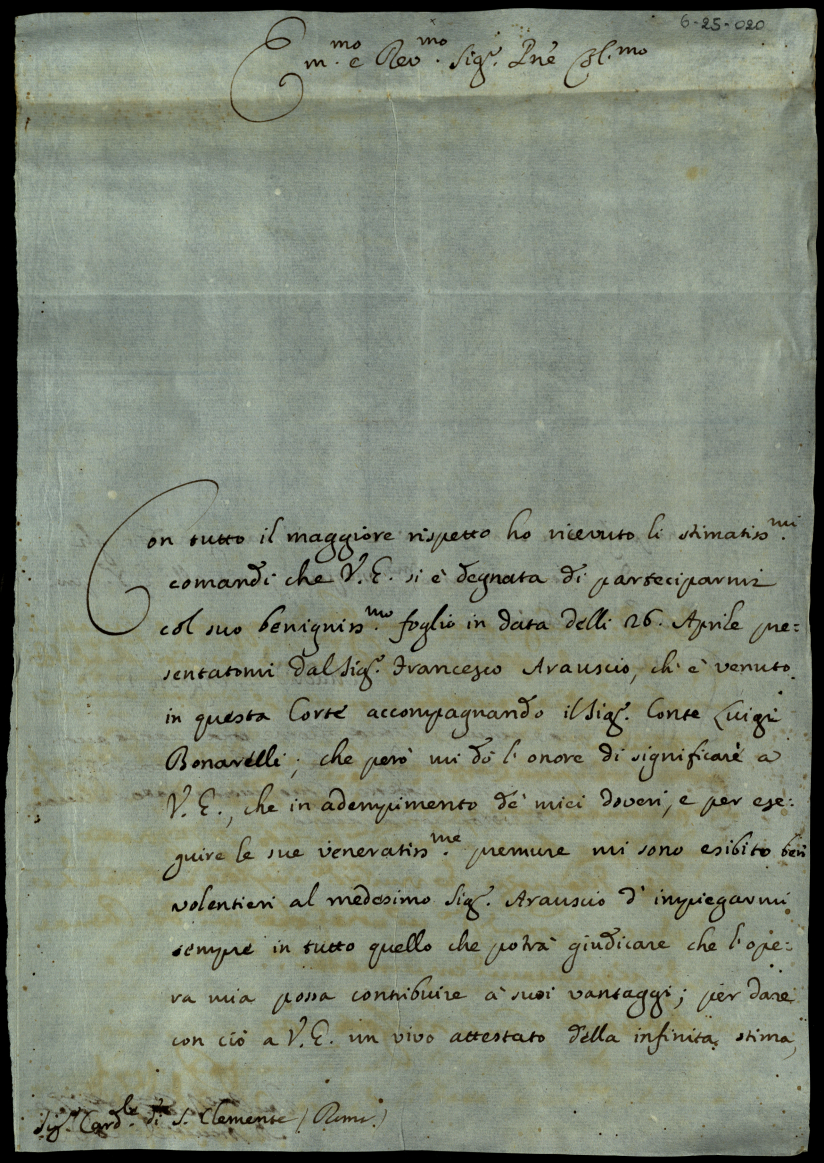 6-25-020
Em.mo e Rev.mo Sig.r P͠ne Col.mo
Con tutto il maggiore rispetto ho ricevuto li stimatiss.mi
comandi che V. E. si è degnata di parteciparmi
col suo benigniss.mo foglio in data delli 26. Aprile pre=
sentatomi dal Sig.r FrancescoArauscio, ch' è venuto
in questa Corte accompagnando il Sig.r Conte Luigi
Bonarelli; che però mi dò l'onore di significare a
V. E., che in adempimento de' miei doveri, e per ese=
guire le sue veneratiss.me premure mi sono esibito ben
volentieri al medesimo Sig.r Arauscio d' impiegarmi
sempre in tutto quello che potrà giudicare che l'ope=
ra mia possa contribuire a' suoi vantaggi; per dare
con ciò a V. E. un vivo attestato della infinita stima,
Sig.r Card.le di S. Clemente (Roma)